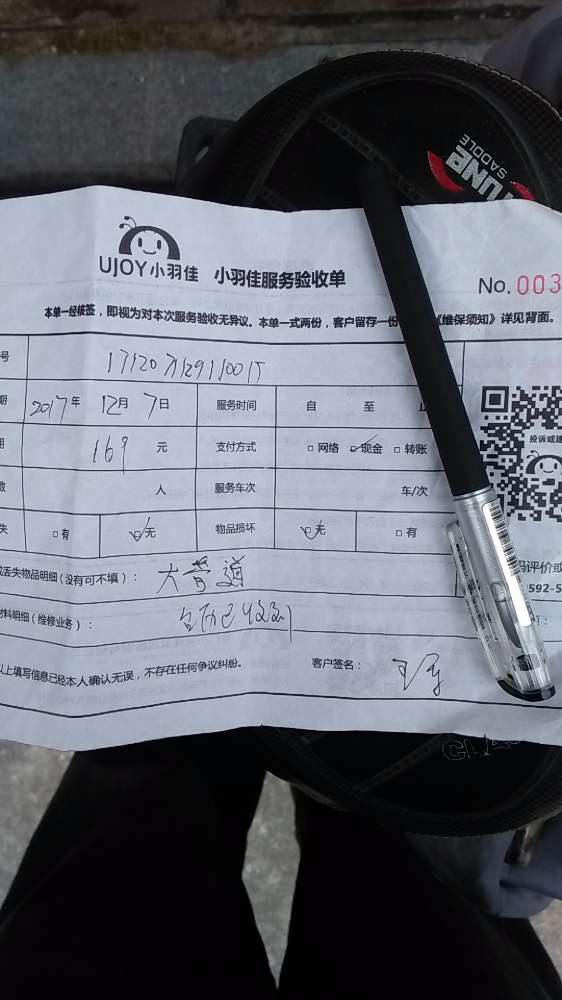 TUNE
SADDLE
UJOY小羽佳 小羽佳服务验收单
No. 003
本单一经核签，即视为对本次服务验收无异议。本单一式两份，客户留存一份 《维保须知》详见背面。
号
期 2017年 12月 7日 服务时间 自 至 止
用 169 元 支付方式 □网络 ☑现金 □转账
投诉或建
数 人 服务车次 车/次
失 □有 ☑无 物品损坏 ☑无 □有
或丢失物品明细（没有可不填）： 大管道
码评价或
592-5
材料明细（维修业务）： 已收到
以上填写信息已经本人确认无误，不存在任何争议纠纷。 客户签名：
CLA